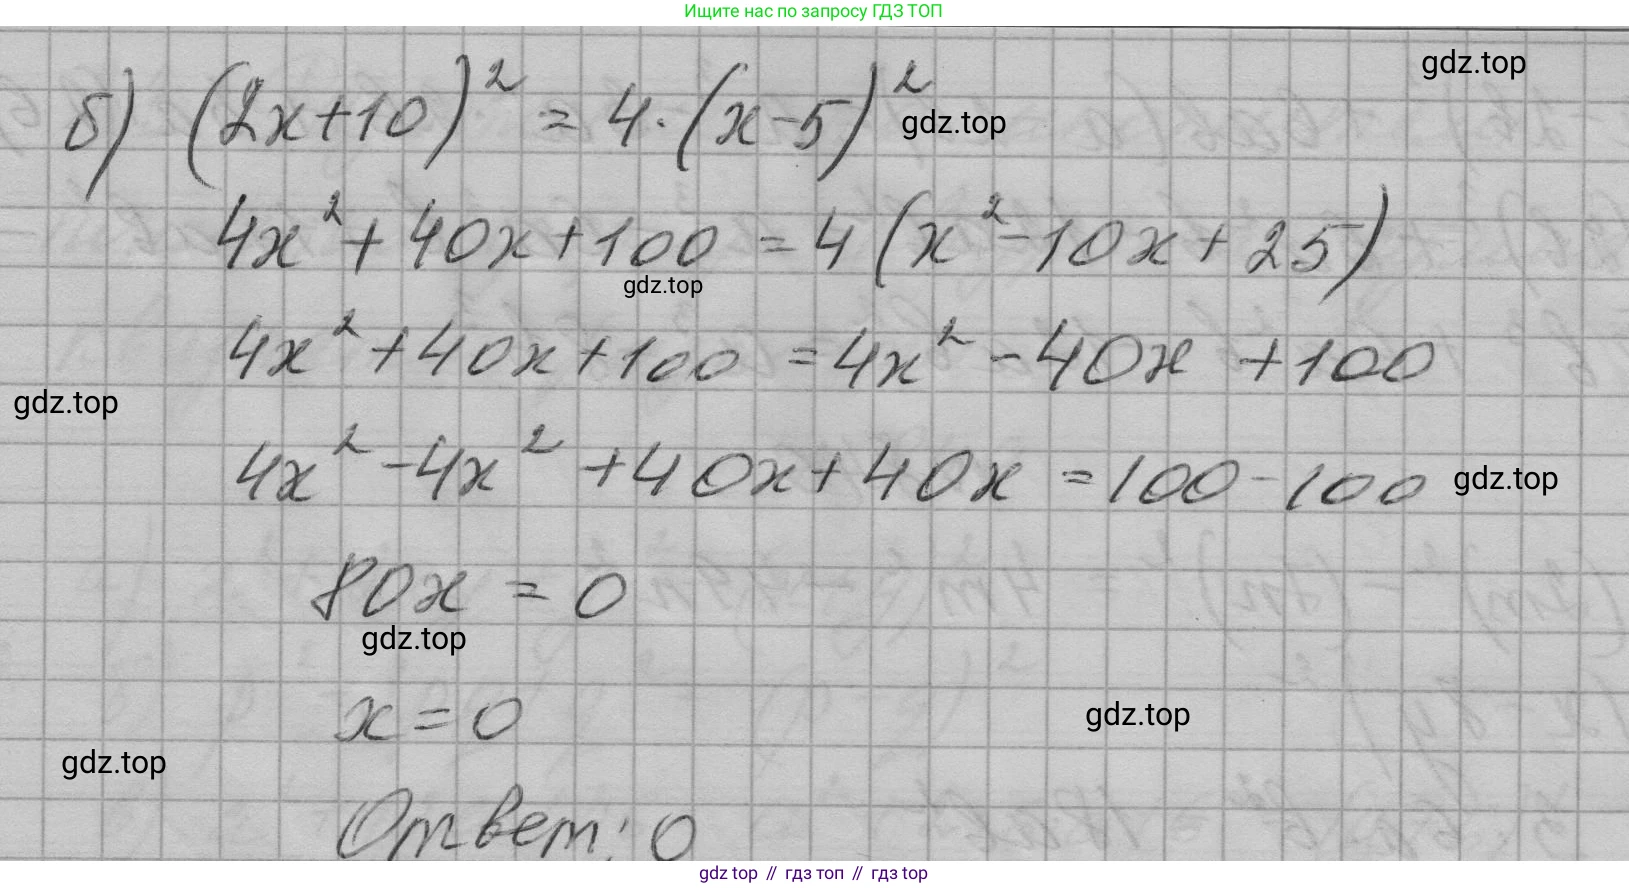 Ищите нас по запросу ГДЗ ТОП
gdz.top
б) (2x+10)² = 4·(x-5)²
gdz.top
4x²+40x+100 = 4(x²-10x+25)
gdz.top
4x²+40x+100 = 4x²-40x+100
gdz.top
4x²-4x²+40x+40x = 100-100
gdz.top
80x = 0
gdz.top
x = 0
gdz.top
gdz.top
Ответ: 0
gdz top // гдз топ // gdz top